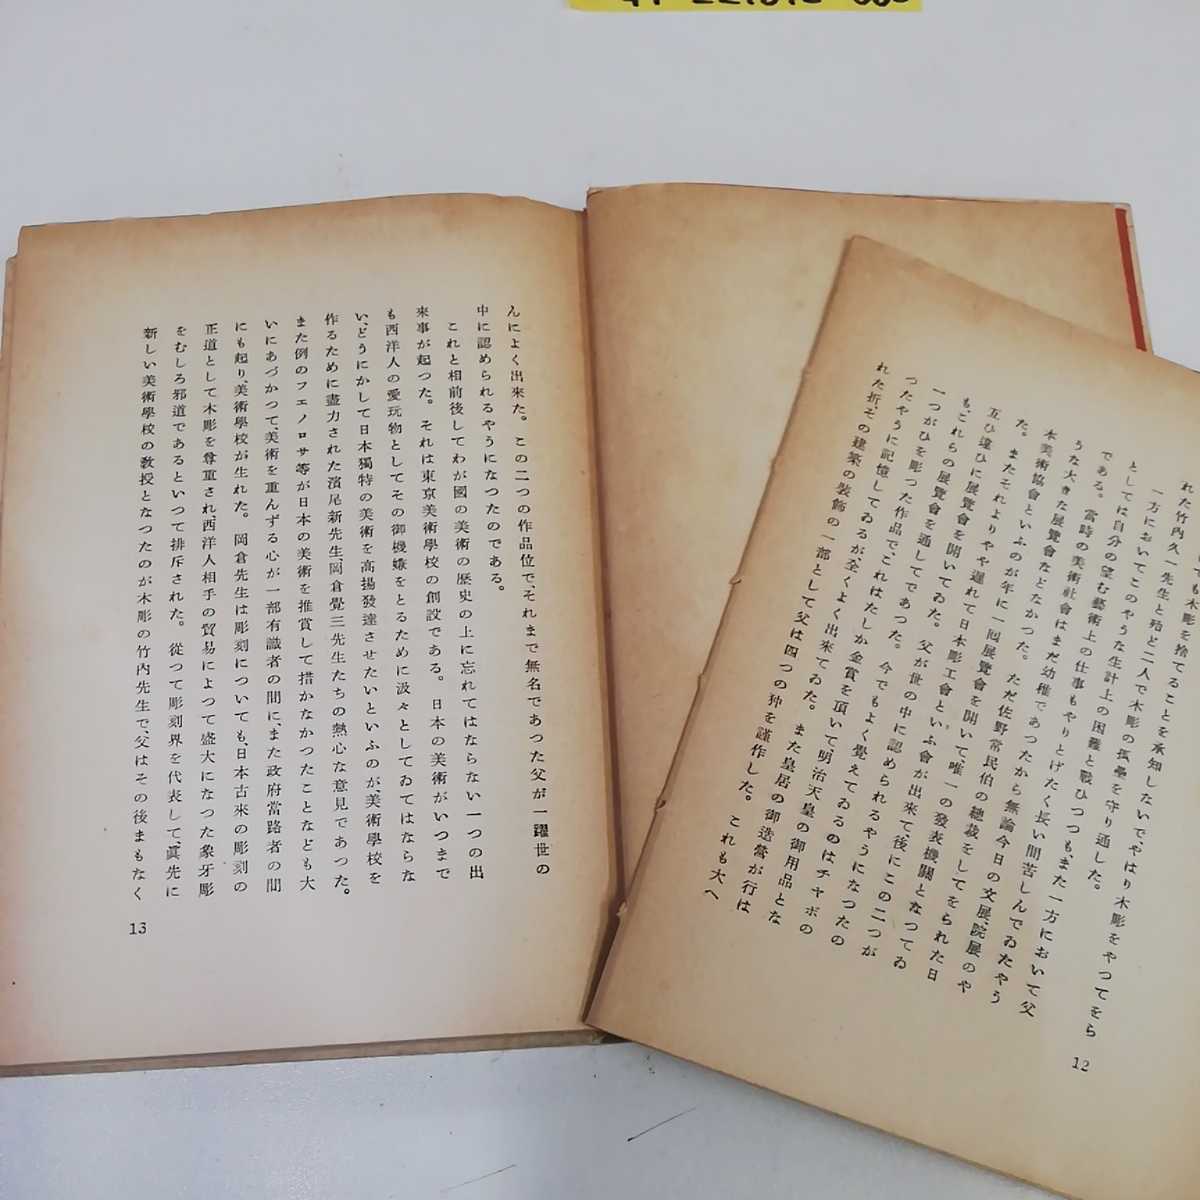 れた竹内久一先生と殆ど二人で木彫の孤壘を守り通した。
一方においてこのやうな生計上の困難と戰ひつつもまた一方において父
としては自分の望む藝術上の仕事もやりとげたく長い間苦しんでゐたやう
である。當時の美術社會はまだ幼稚であつたから無論今日の文展、院展のや
うな大きな展覽會などなかつた。ただ佐野常民伯の總裁をしてをられた日
本美術協會といふのが年に一回展覽會を開いて、唯一の發表機關となつてゐ
た。またそれよりやや遲れて日本彫工會といふ會が出來て後にこの二つが
互ひ違ひに展覽會を開いてゐた。父が世の中に認められるやうになつたの
も、これらの展覽會を通してであつた。今でもよく覺えてゐるのはチヤボの
一つがひを彫つた作品でこれはたしか金賞を頂いて明治天皇の御用品とな
つたやうに記憶してゐるが、全くよく出來てゐた。また皇居の御造營が行は
れた折、その建築の裝飾の一部として父は四つの狆を謹作した。これも大へ
12
んによく出來た。この二つの作品位で、それまで無名であつた父が一躍世の
中に認められるやうになつたのである。
これと相前後してわが國の美術の歷史の上に忘れてはならない一つの出
來事が起つた。それは東京美術學校の創設である。日本の美術がいつまで
も西洋人の愛玩物としてその御機嫌をとるために汲々としてゐてはならな
い、どうにかして日本獨特の美術を高揚發達させたいといふのが、美術學校を
作るために盡力された濱尾新先生、岡倉覺三先生たちの熱心な意見であつた。
また例のフエノロサ等が日本の美術を推賞して措かなかつたことなども大
いにあづかつて、美術を重んずる心が一部有識者の間に、また政府當路者の間
にも起り、美術學校が生れた。岡倉先生は彫刻についても、日本古來の彫刻の
正道として木彫を尊重され、西洋人相手の貿易によつて盛大になつた象牙彫
をむしろ邪道であるといつて排斥された。從つて彫刻界を代表して、眞先に
新しい美術學校の敎授となつたのが木彫の竹内先生で、父はその後まもなく
13